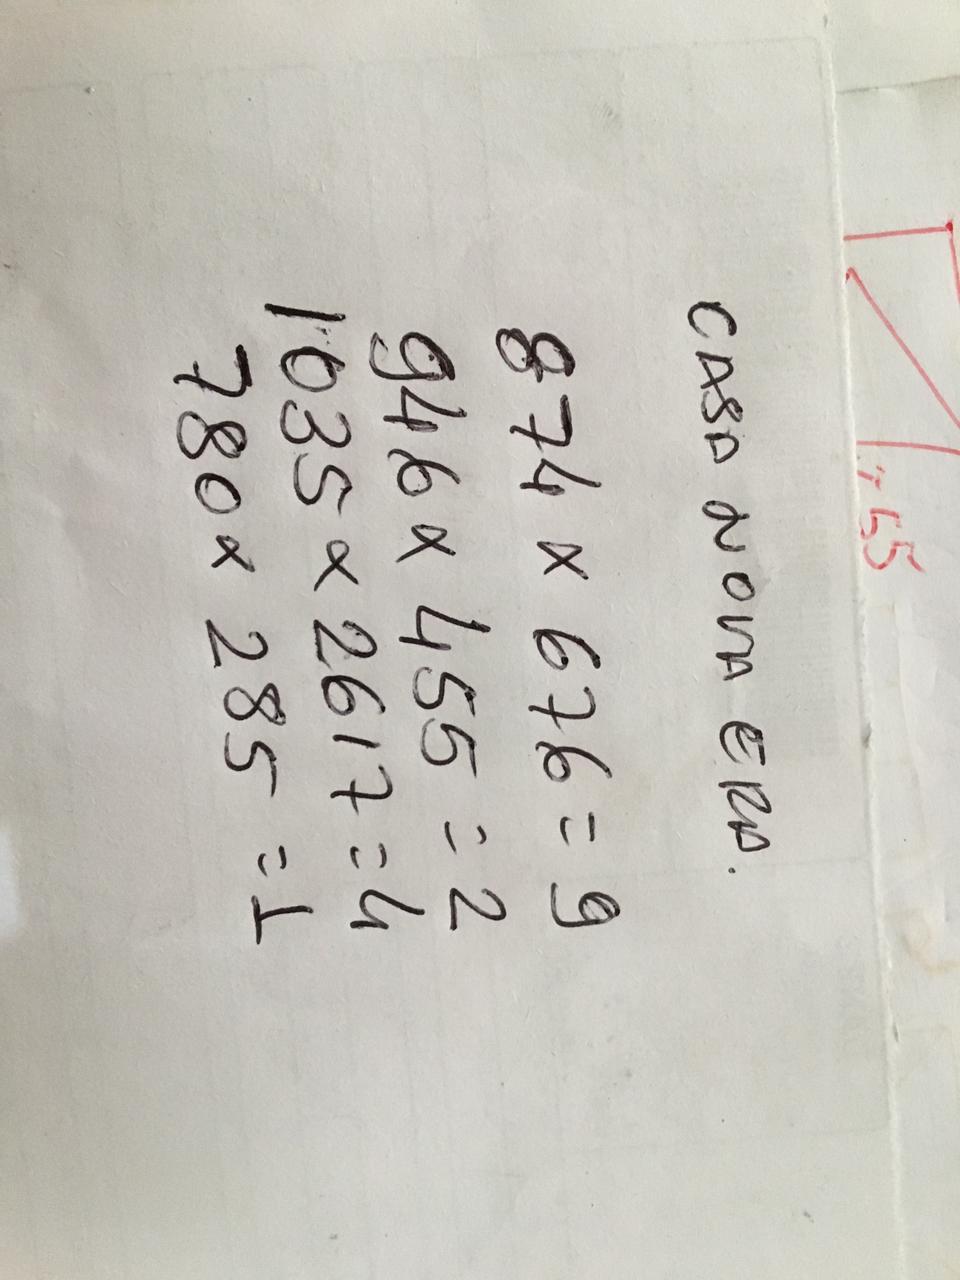 CASA NOVA ERA.
874 x 676 = 9
946 x 455 = 2
1035 x 2617 = 4
780 x 285 = 1
55